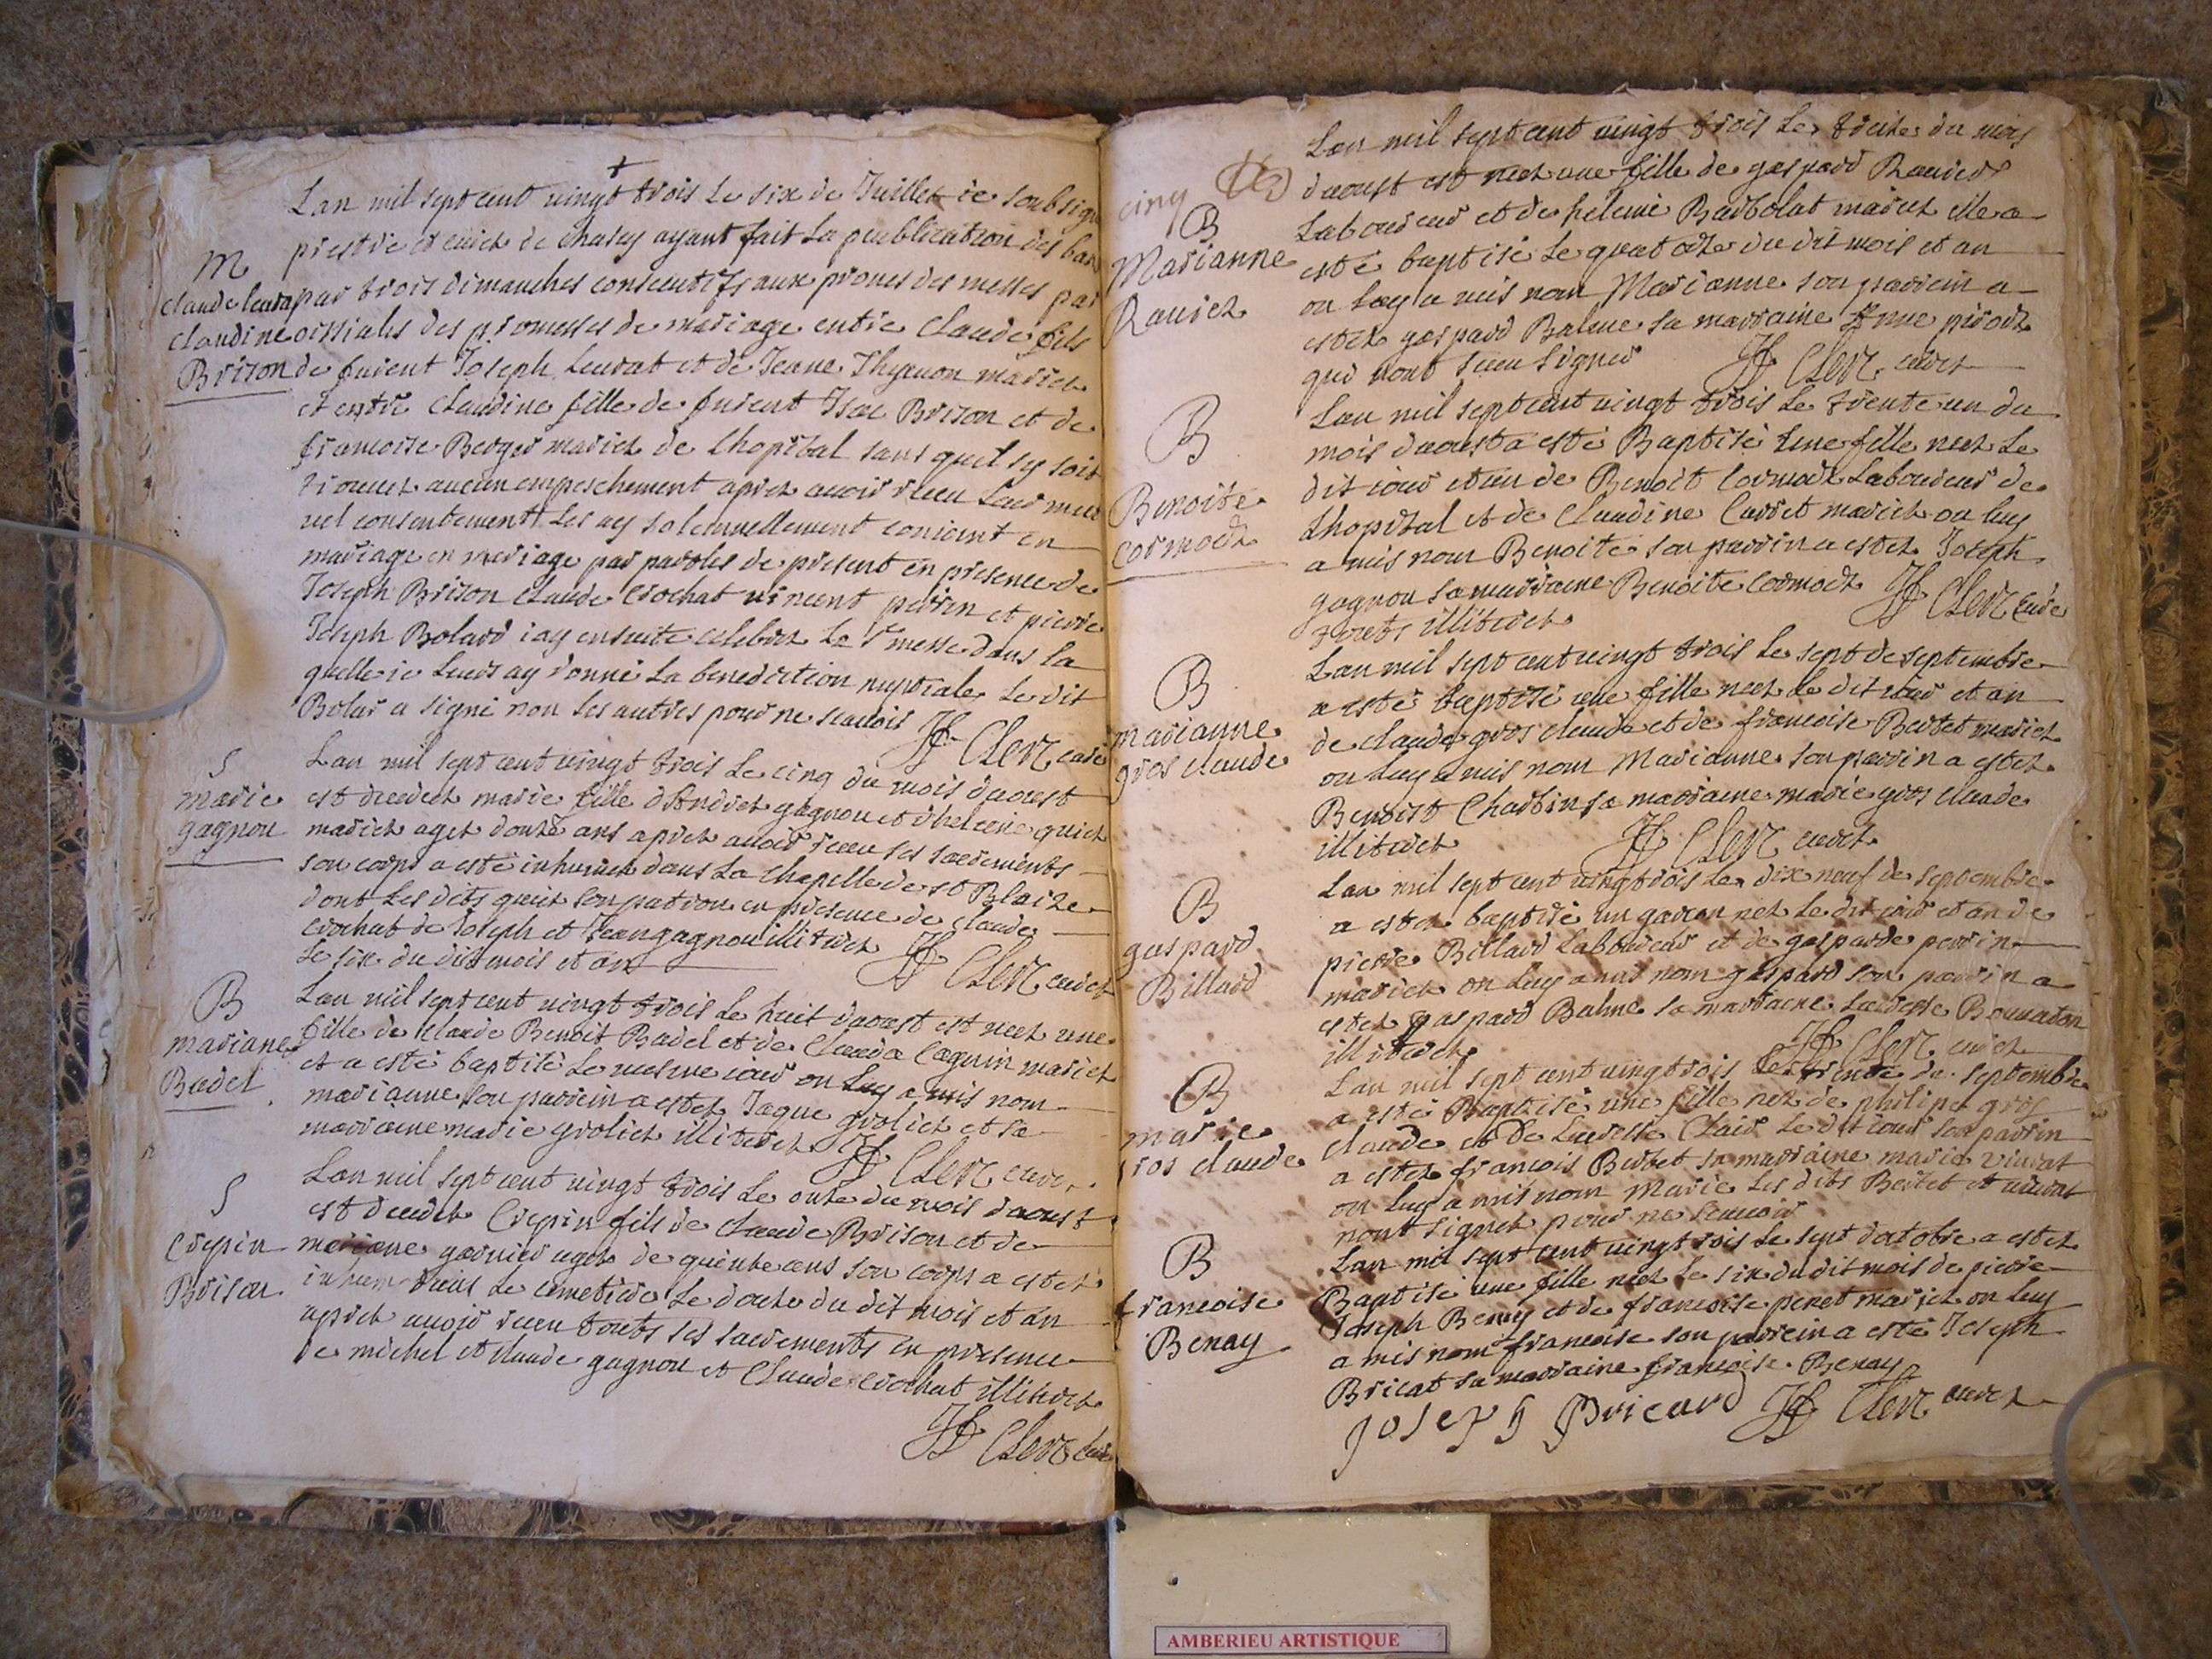 Lan mil sept cent vingt trois le six de Juillet ie soubsigne
prestre et curet de chasey ayant fait la publication des bans
M
claude leurat
claudine
Brison
par trois dimanches consecutifs aux prones des messes par
oissiales des promesses de mariage entre claude fils
de furent Joseph leurat et de Jeane Thyauon mariet
et entre claudine fille de furent Isac Brison et de
francoise Berger mariet de lhopital sans quil sy soit
trouuet aucun empeschement apret auoir receu leur mutu
uel consentement les ay solennellement conioint en
mariage en mariage par paroles de present en presence de
Joseph Brison claude crochat vincent perrin et pierre
Joseph Bolard iay ensuite celebret la Ste messe dans la
quelle ie leurs ay donné la benediction nuptiale le dit
Bolar a signé non les autres pour ne scauoir JF Clerc curé
S
marie
gagnon
Lan mil sept cent vingt trois le cinq du mois daoust
est decedet marie fille dAndret gagnon et dhelene guiet
mariet aget douze ans apret auoir receu ses sacrements
son corps a esté inhumet dans la chapelle de st Blaize
dont les dits guiet son patrons en presence de claude
crochat de Joseph et Jean gagnon illiteret
le six du dit mois et an JF Clerc curet
B
mariane
Badel
Lan mil sept cent vingt trois le huit daoust est neet une
fille de claude Benoit Badel et de Clauda Caguin mariet
et a esté baptisé le mesme iour on luy a mis nom
marianne son parrein a estet Jaque groliet et sa
marraine marie groliet illiteret JF Clerc curet
S
Crepin
Brison
Lan mil sept cent vingt trois le onze du mois daoust
est decedet Crepin fils de claude Brison et de
mariane garnier aget de quinze ans son corps a estet
inhum dans le cemetiere le douze du dit mois et an
apret auoir receu touts ses sacrements en presence
de michel et claude gagnon et Claude crochat illiteret
JF Clerc curé
cinq
B
Marianne
Rauiet
Lan mil sept cent vingt trois le treize du mois
daoust est neet une fille de gaspard Rauiet
Laboureur et de helene Barbolat mariet elle a
esté baptisé le quatorze du dit mois et an
on luy a mis nom Marianne son parrein a
estet gaspard Balme sa marraine Anne pirodt
qui nont sceu signer JF Clerc curet
B
Benoite
Cormodt
Lan mil sept cent vingt trois le trente un du
mois daoust a esté Baptisé une fille neet le
dit iour et an de Benoit Cormodt Laboureur de
Lhopital et de Claudine Curtet mariet on luy
a mis nom Benoite son parrin a estet Joseph
gagnon sa marraine Benoite Cormodt
touts illiteret JF Clerc curé
B
marianne
gros claude
Lan mil sept cent vingt trois le sept de septembre
a esté baptisé une fille neet le dit iour et an
de claude gros claude et de francoise Bertet mariet
on luy a mis nom Marianne son parrin a estet
Benoist Charbin sa marraine marie gros claude
illiteret JF Clerc curet
B
gaspard
Billard
Lan mil sept cent vingt trois le dix neuf de septembre
a estet baptisé un garcon net le dit iour et an de
pierre Billard Laboureur et de gasparde perrin
mariet on luy a mis nom gaspard son parrin a
estet gaspard Balme sa marraine
illiteret JF Clerc curet
B
marie
gros claude
Lan mil sept cent vingt trois le trente de septembre
a esté Baptisé une fille net de philipe gros
claude et de Clair le dit iour son parrin
a estet francois Bertet sa marraine marie viurat
on luy a mis nom Marie les dits Bertet et viurat
nont signet pour ne scauoir
B
francoise
Benay
Lan mil sept cent vingt trois le sept doctobre a estet
Baptisé une fille neet le six du dit mois de pierre
Joseph Benay et de francoise penet mariet on luy
a mis nom francoise son parrein a esté Joseph
Bricat sa marraine francoise Benay
Joseph Bricard JF Clerc curet
AMBERIEU ARTISTIQUE